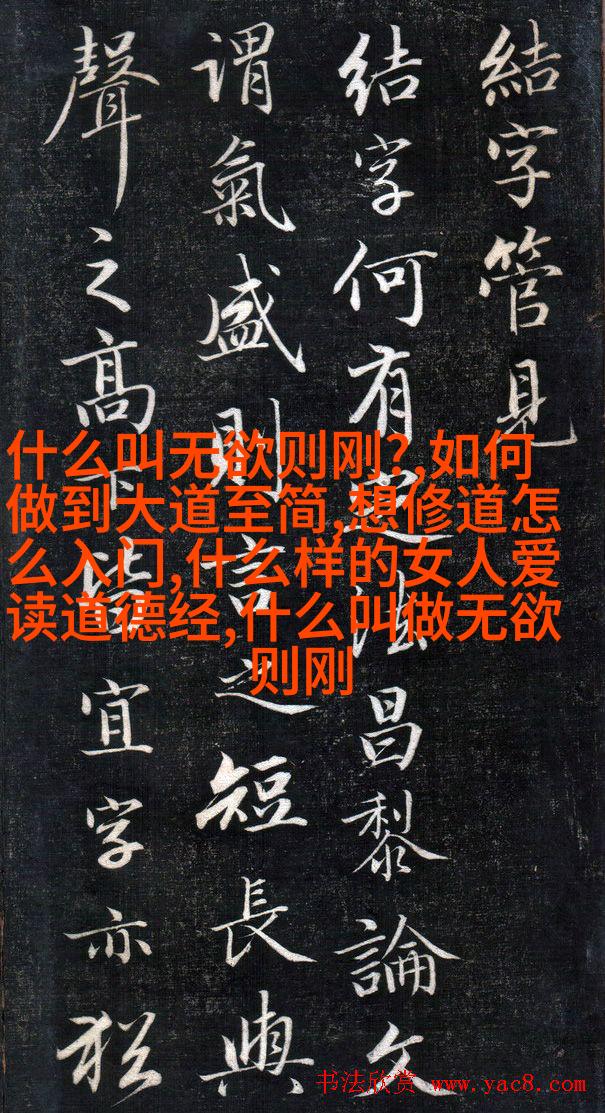 結字管見
結字何有定法昌黎論文
謂氣盛則言之短長與
聲之高下皆宜字亦猶
什么叫无欲则刚?,如何
做到大道至简,想修道怎
么入门,什么样的女人爱
读道德经,什么叫做无欲
则刚
书法欣赏 www.yac8.com